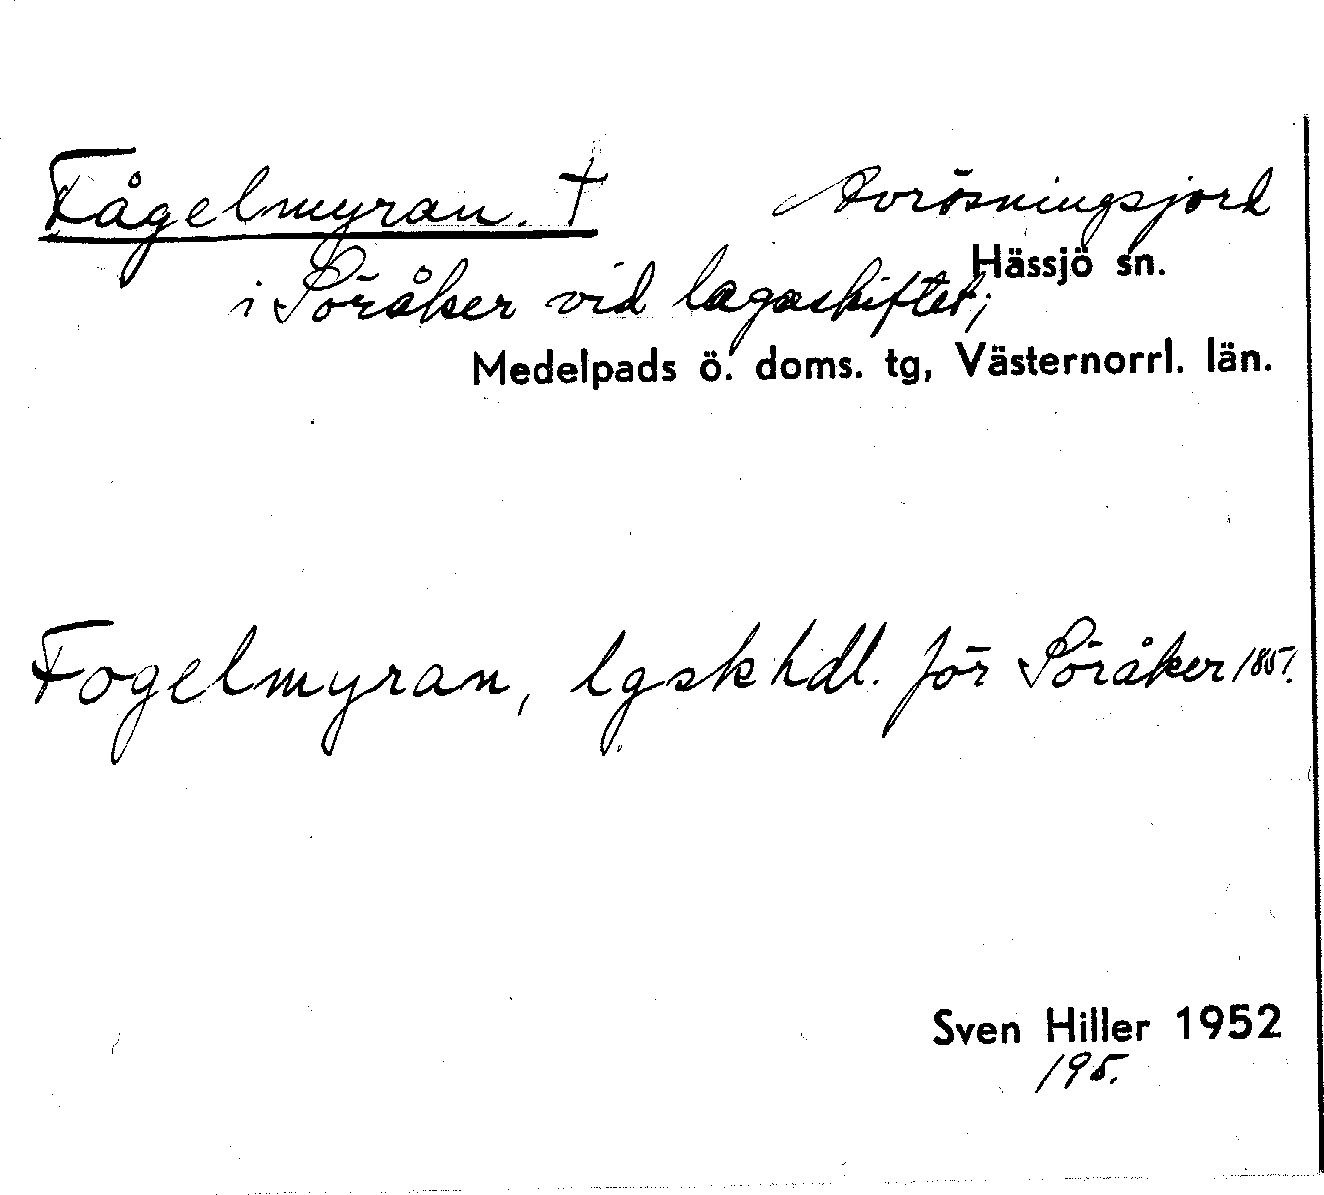 Fågelmyran. † Avrösningsjord
Hässjö sn.
i Söråker vid lagaskiftet;
Medelpads ö. doms. tg, Västernorrl. län.
Fogelmyran, lgskhdl. för Söråker 1851.
Sven Hiller 1952
195.